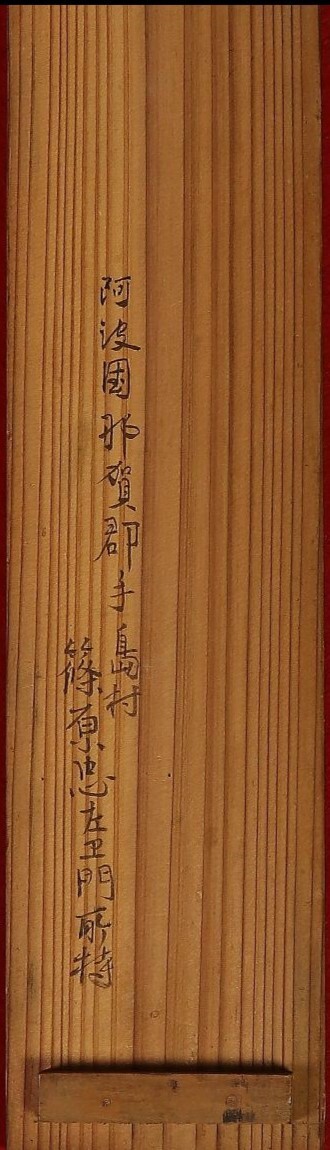 阿波國那賀郡手島村
篠原忠左卫門所持